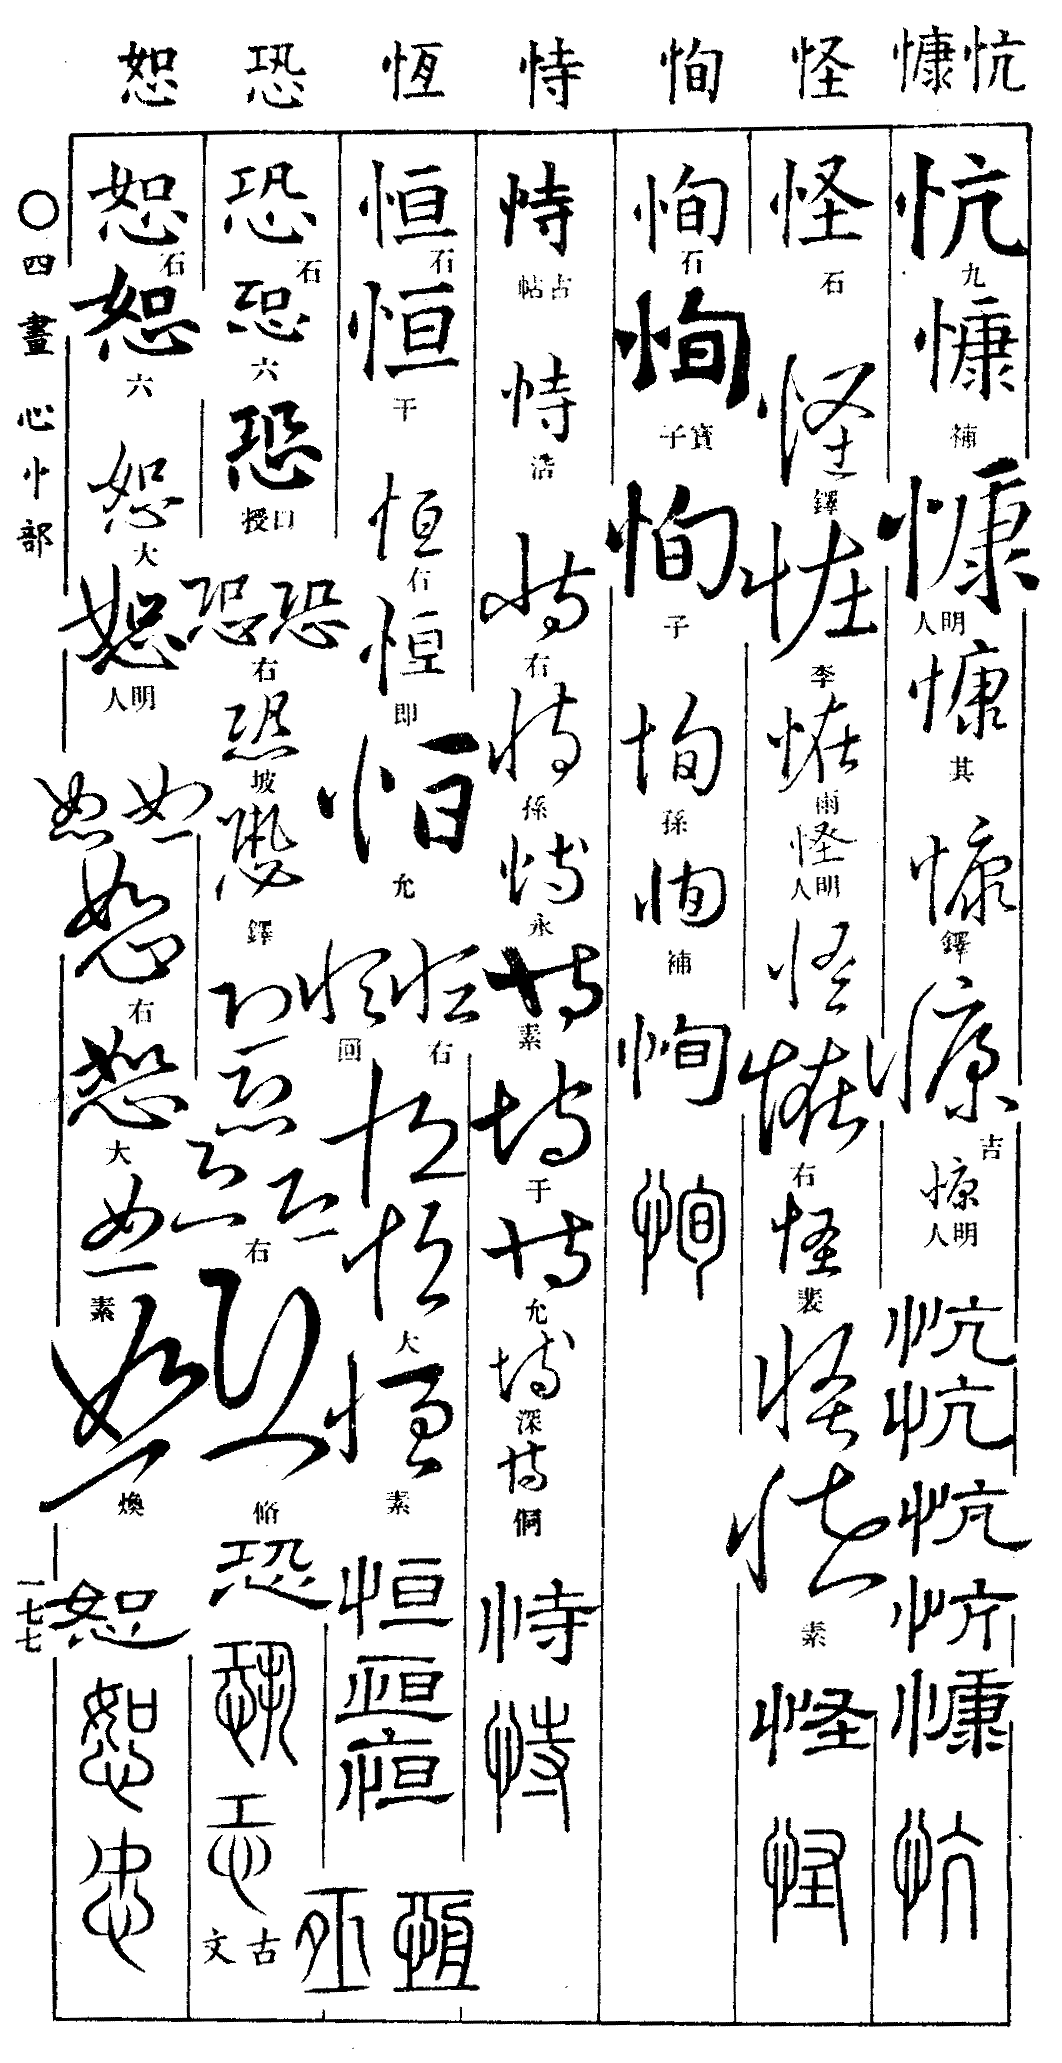 忼 慷 怪 恂 恃 恆 恐 恕
忼
九
慷
補
慷
明人
慷
其
慷
鐸
慷
吉
慷
明人
忼
忼
忼
忼
慷
忼
怪
石
怪
鐸
怪
李
怪
雨
怪
明人
怪
怪
右
怪
裴
怪
怪
素
怪
怪
恂
石
恂
寶子
恂
子
恂
孫
恂
補
恂
恂
恃
占帖
恃
浩
恃
右
恃
孫
恃
永
恃
素
恃
于
恃
允
恃
深
恃
侗
恃
恃
恒
石
恒
干
恒
右
恒
即
恒
允
恒 恒
右 回
恒
恒
大
恒
素
恒
恒
恒
恆
恐
石
恐
六
恐
口授
恐 恐
右
恐
坡
恐
鐸
恐
恐
恐 恐
右
恐
脩
恐
恐
古文
恕
石
恕
六
恕
大
恕
明人
恕 恕
恕
右
恕
大
恕
素
恕
煥
恕
恕
〇四畫 心忄部
一七七